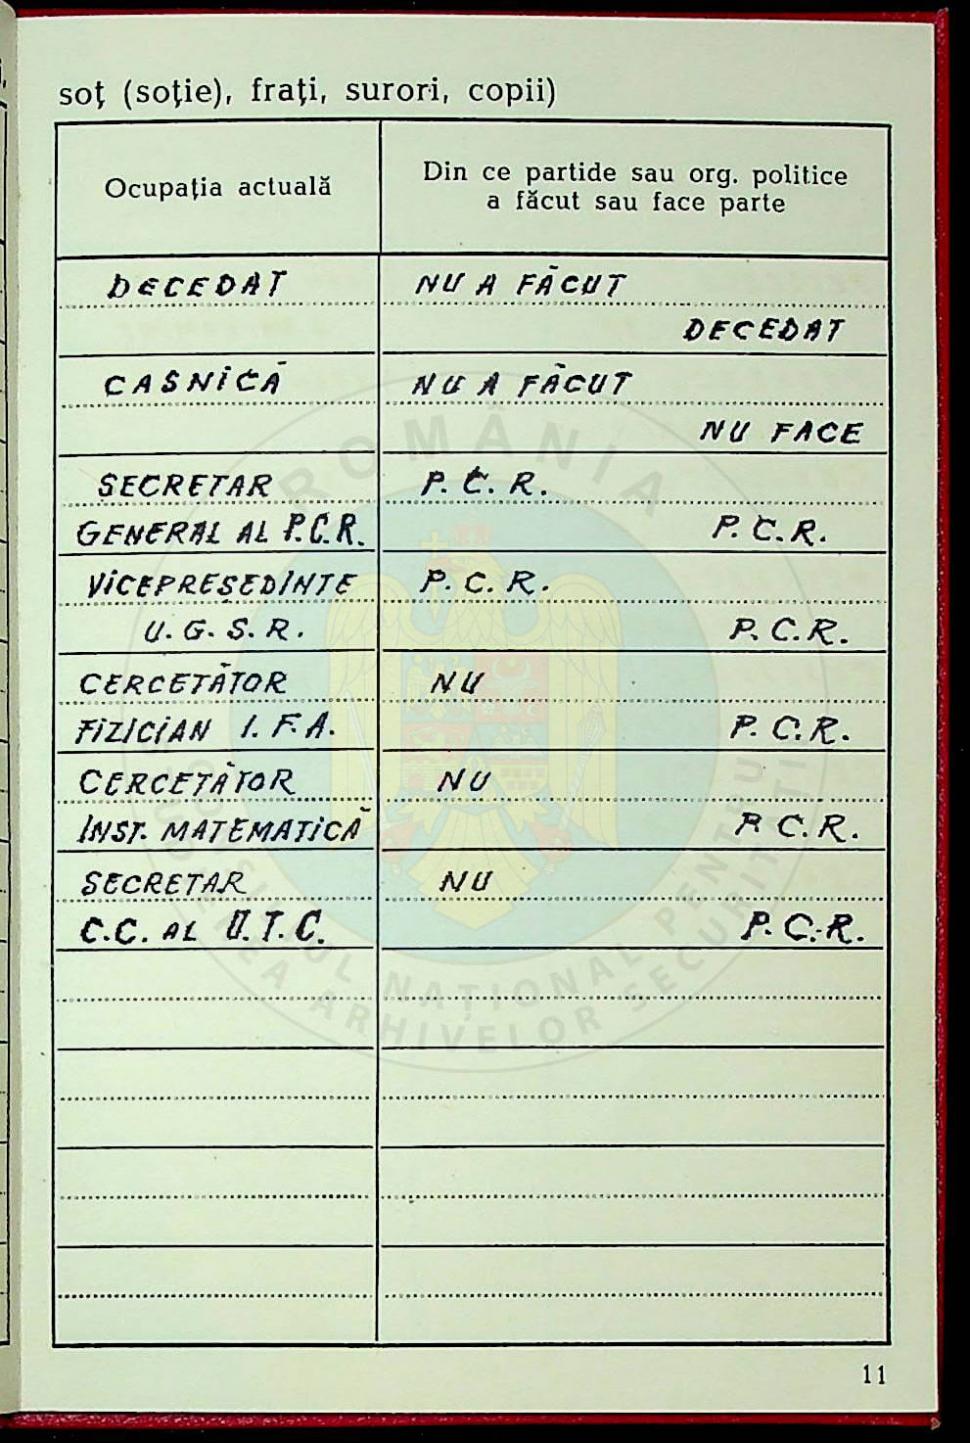 soț (soție), frați, surori, copii)
Ocupația actuală
Din ce partide sau org. politice
a făcut sau face parte
DECEDAT NU A FĂCUT
DECEDAT
CASNICĂ NU A FĂCUT
NU FACE
SECRETAR P.C.R.
GENERAL AL P.C.R. P.C.R.
VICEPREȘEDINTE P.C.R.
U.G.S.R. P.C.R.
CERCETĂTOR NU
FIZICIAN I.F.A. P.C.R.
CERCETĂTOR NU
INST. MATEMATICĂ P.C.R.
SECRETAR NU
C.C. AL U.T.C. P.C.R.
11
ROMÂNIA
CONSILIUL NAȚIONAL PENTRU
STUDIEREA ARHIVELOR SECURITĂȚII